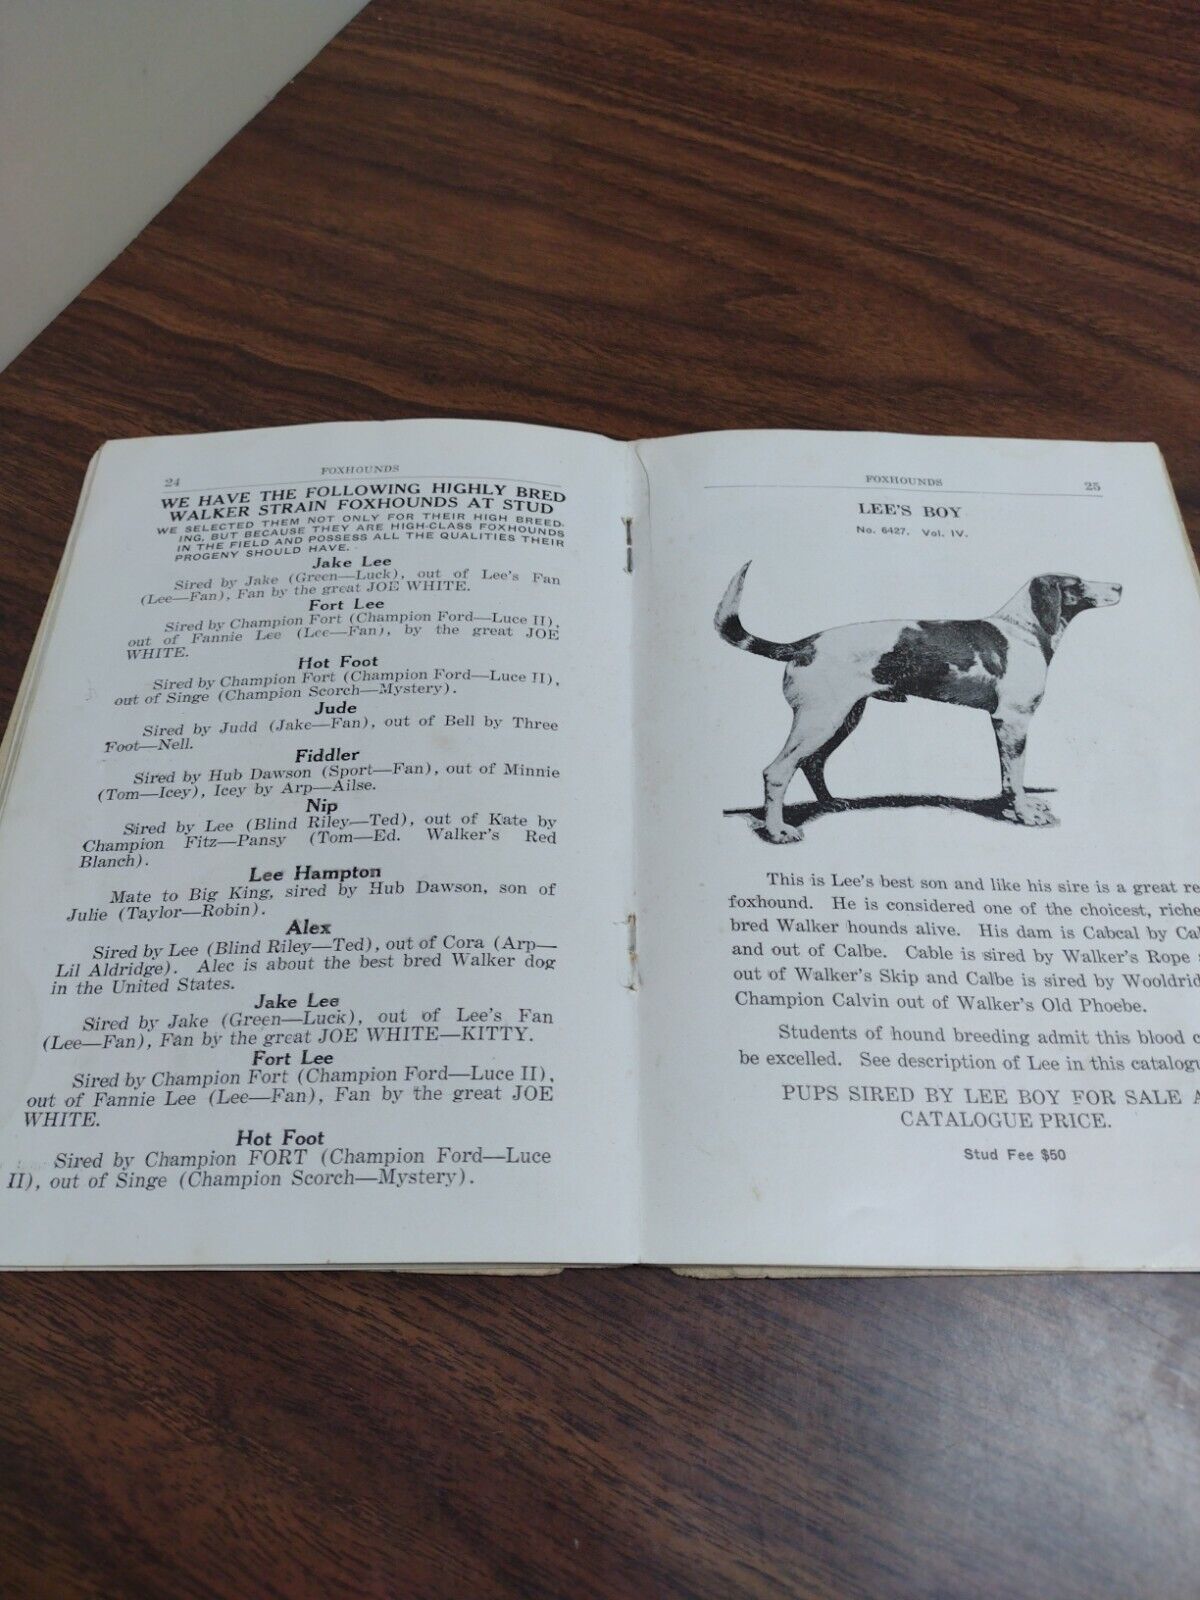 24
FOXHOUNDS
WE HAVE THE FOLLOWING HIGHLY BRED
WALKER STRAIN FOXHOUNDS AT STUD
WE SELECTED THEM NOT ONLY FOR THEIR HIGH BREED-
ING, BUT BECAUSE THEY ARE HIGH-CLASS FOXHOUNDS
IN THE FIELD AND POSSESS ALL THE QUALITIES THEIR
PROGENY SHOULD HAVE.
Jake Lee
Sired by Jake (Green—Luck), out of Lee's Fan
(Lee—Fan), Fan by the great JOE WHITE.
Fort Lee
Sired by Champion Fort (Champion Ford—Luce II),
out of Fannie Lee (Lee—Fan), by the great JOE
WHITE.
Hot Foot
Sired by Champion Fort (Champion Ford—Luce II),
out of Singe (Champion Scorch—Mystery).
Jude
Sired by Judd (Jake—Fan), out of Bell by Three
Foot—Nell.
Fiddler
Sired by Hub Dawson (Sport—Fan), out of Minnie
(Tom—Icey), Icey by Arp—Ailse.
Nip
Sired by Lee (Blind Riley—Ted), out of Kate by
Champion Fitz—Pansy (Tom—Ed. Walker's Red
Blanch).
Lee Hampton
Mate to Big King, sired by Hub Dawson, son of
Julie (Taylor—Robin).
Alex
Sired by Lee (Blind Riley—Ted), out of Cora (Arp—
Lil Aldridge). Alec is about the best bred Walker dog
in the United States.
Jake Lee
Sired by Jake (Green—Luck), out of Lee's Fan
(Lee—Fan), Fan by the great JOE WHITE—KITTY.
Fort Lee
Sired by Champion Fort (Champion Ford—Luce II),
out of Fannie Lee (Lee—Fan), Fan by the great JOE
WHITE.
Hot Foot
Sired by Champion FORT (Champion Ford—Luce
II), out of Singe (Champion Scorch—Mystery).
FOXHOUNDS
25
LEE'S BOY
No. 6427. Vol. IV.
This is Lee's best son and like his sire is a great re
foxhound. He is considered one of the choicest, riche
bred Walker hounds alive. His dam is Cabcal by Ca
and out of Calbe. Cable is sired by Walker's Rope
out of Walker's Skip and Calbe is sired by Wooldrid
Champion Calvin out of Walker's Old Phoebe.
Students of hound breeding admit this blood c
be excelled. See description of Lee in this catalogu
PUPS SIRED BY LEE BOY FOR SALE A
CATALOGUE PRICE.
Stud Fee $50